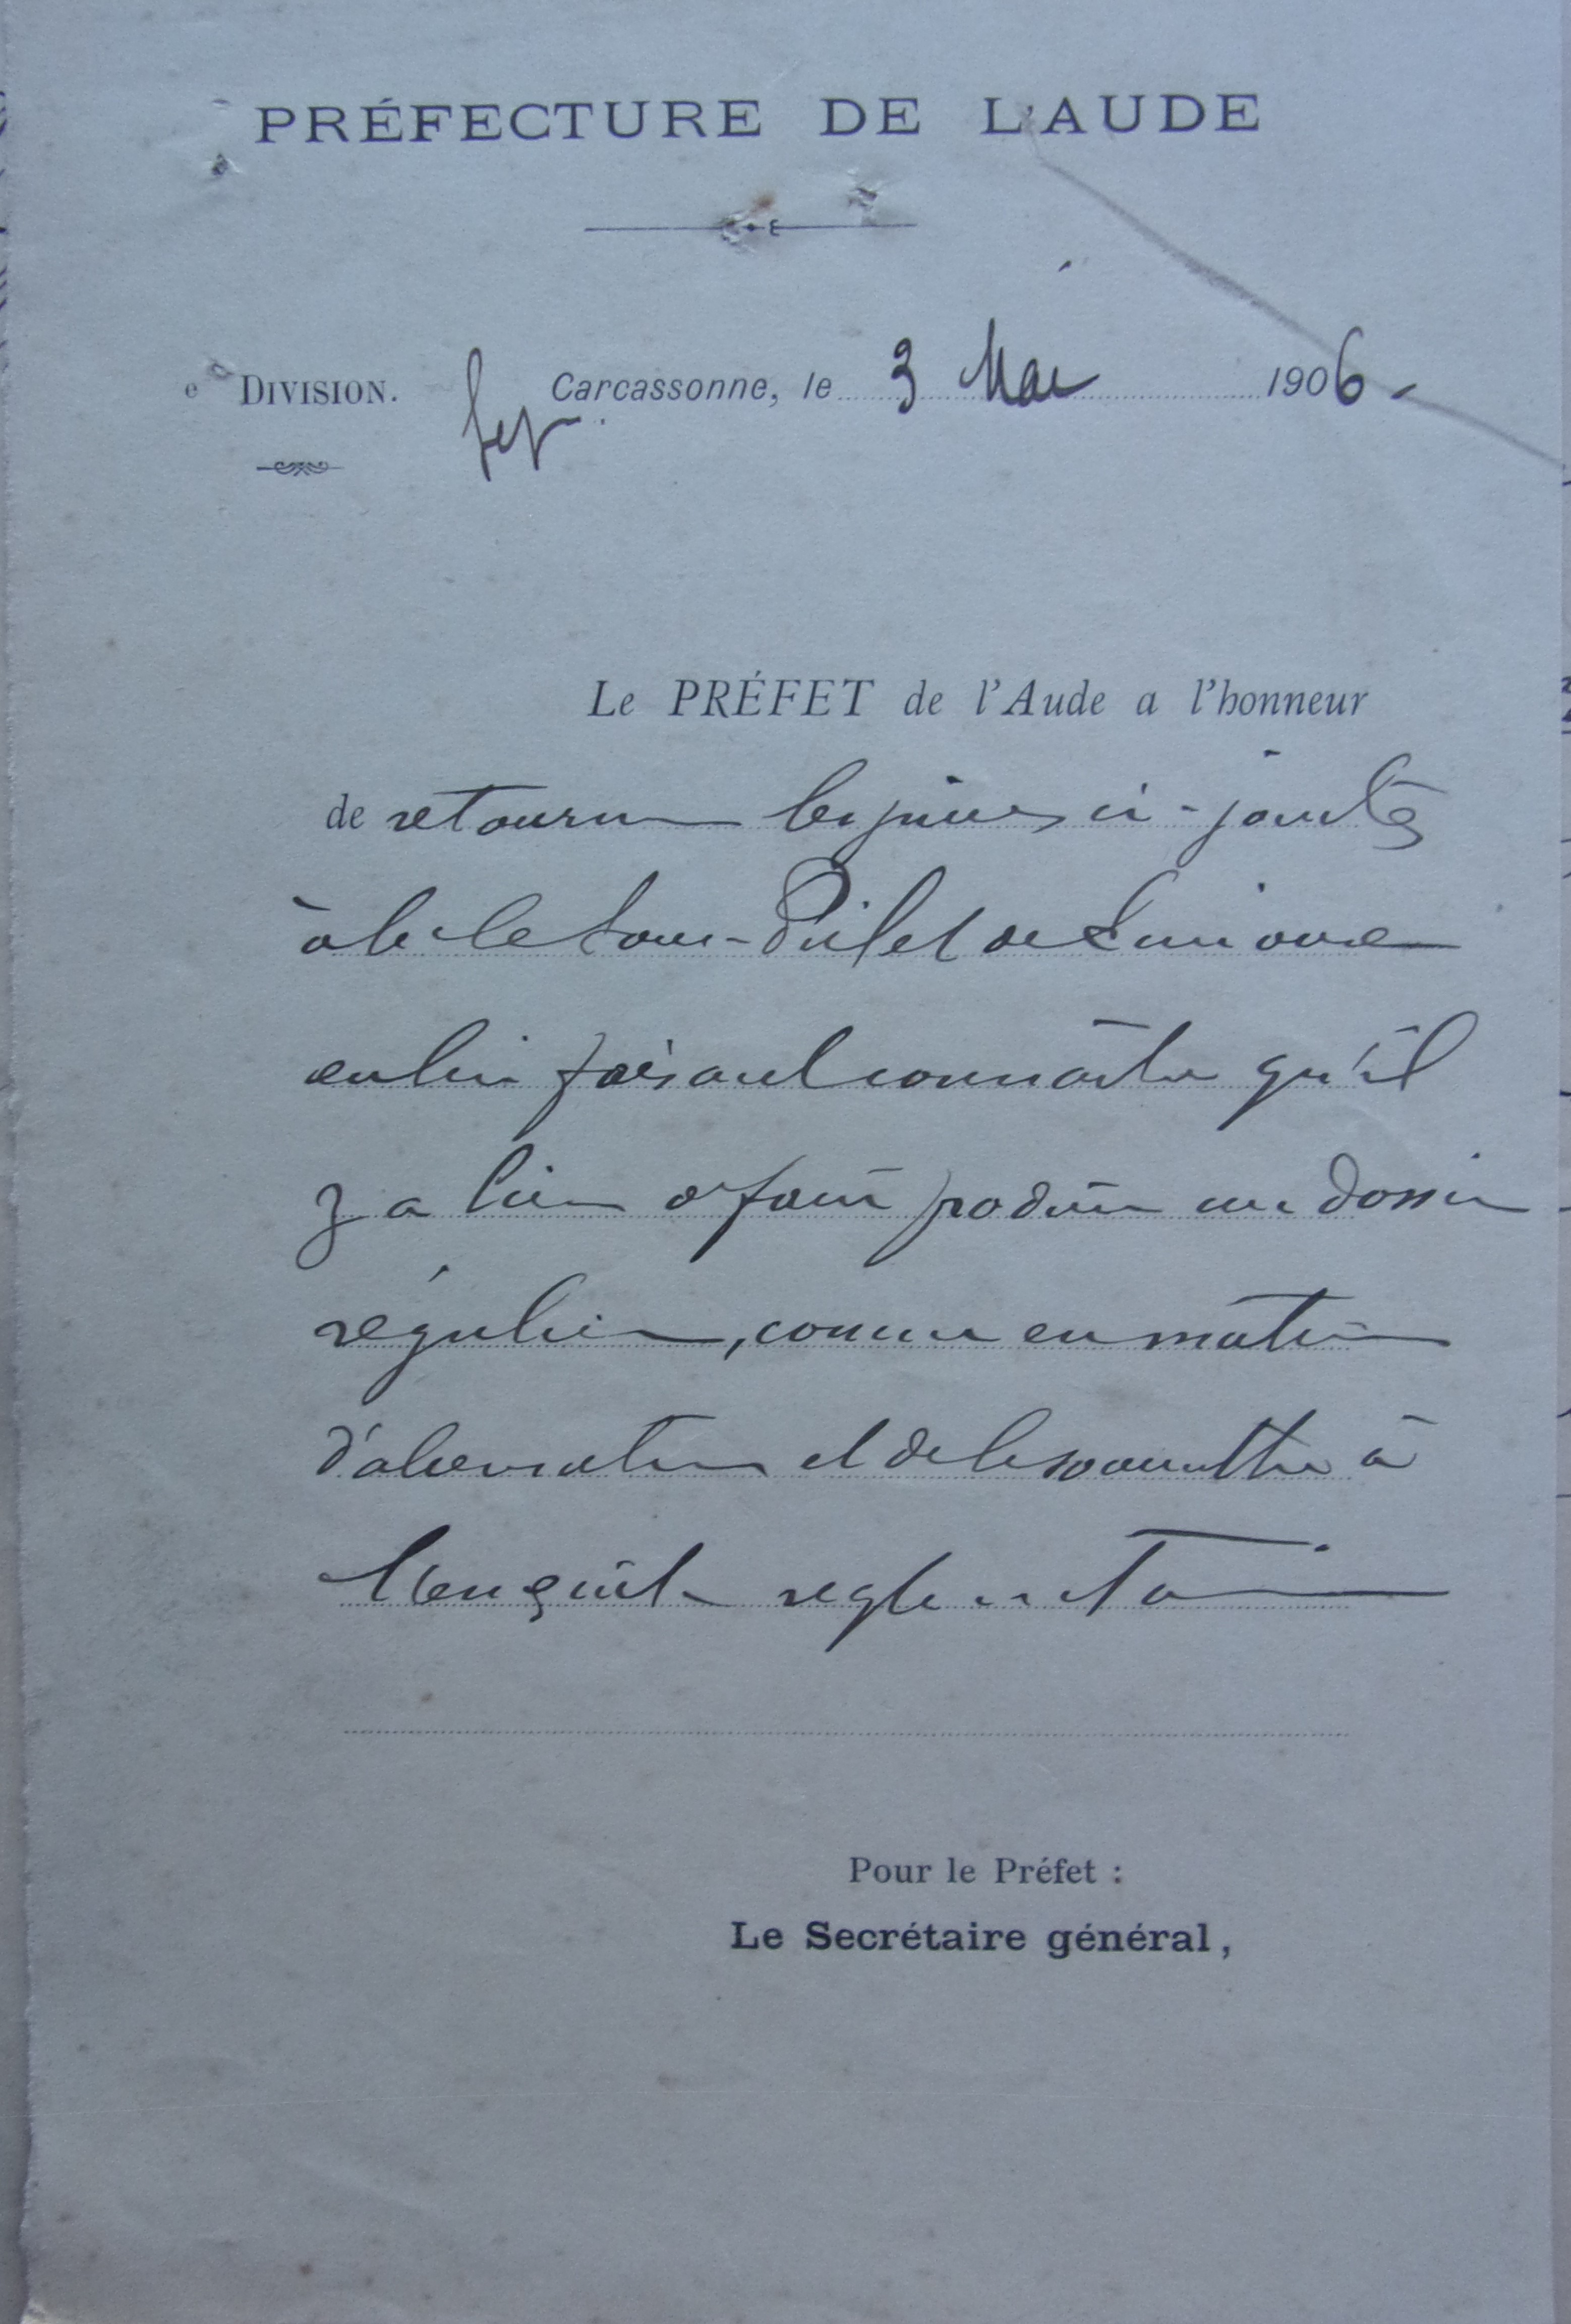 PRÉFECTURE DE L'AUDE
e DIVISION.
Carcassonne, le 3 Mai 1906.
Le PRÉFET de l'Aude a l'honneur
de retourner les pièces ci-jointes
à M. le Sous-Préfet de Limoux
en lui faisant connaître qu'il
y a lieu de faire produire un dossier
régulier, comme en matière
d'aliénation et de le soumettre à
l'enquête reglementaire
Pour le Préfet :
Le Secrétaire général,